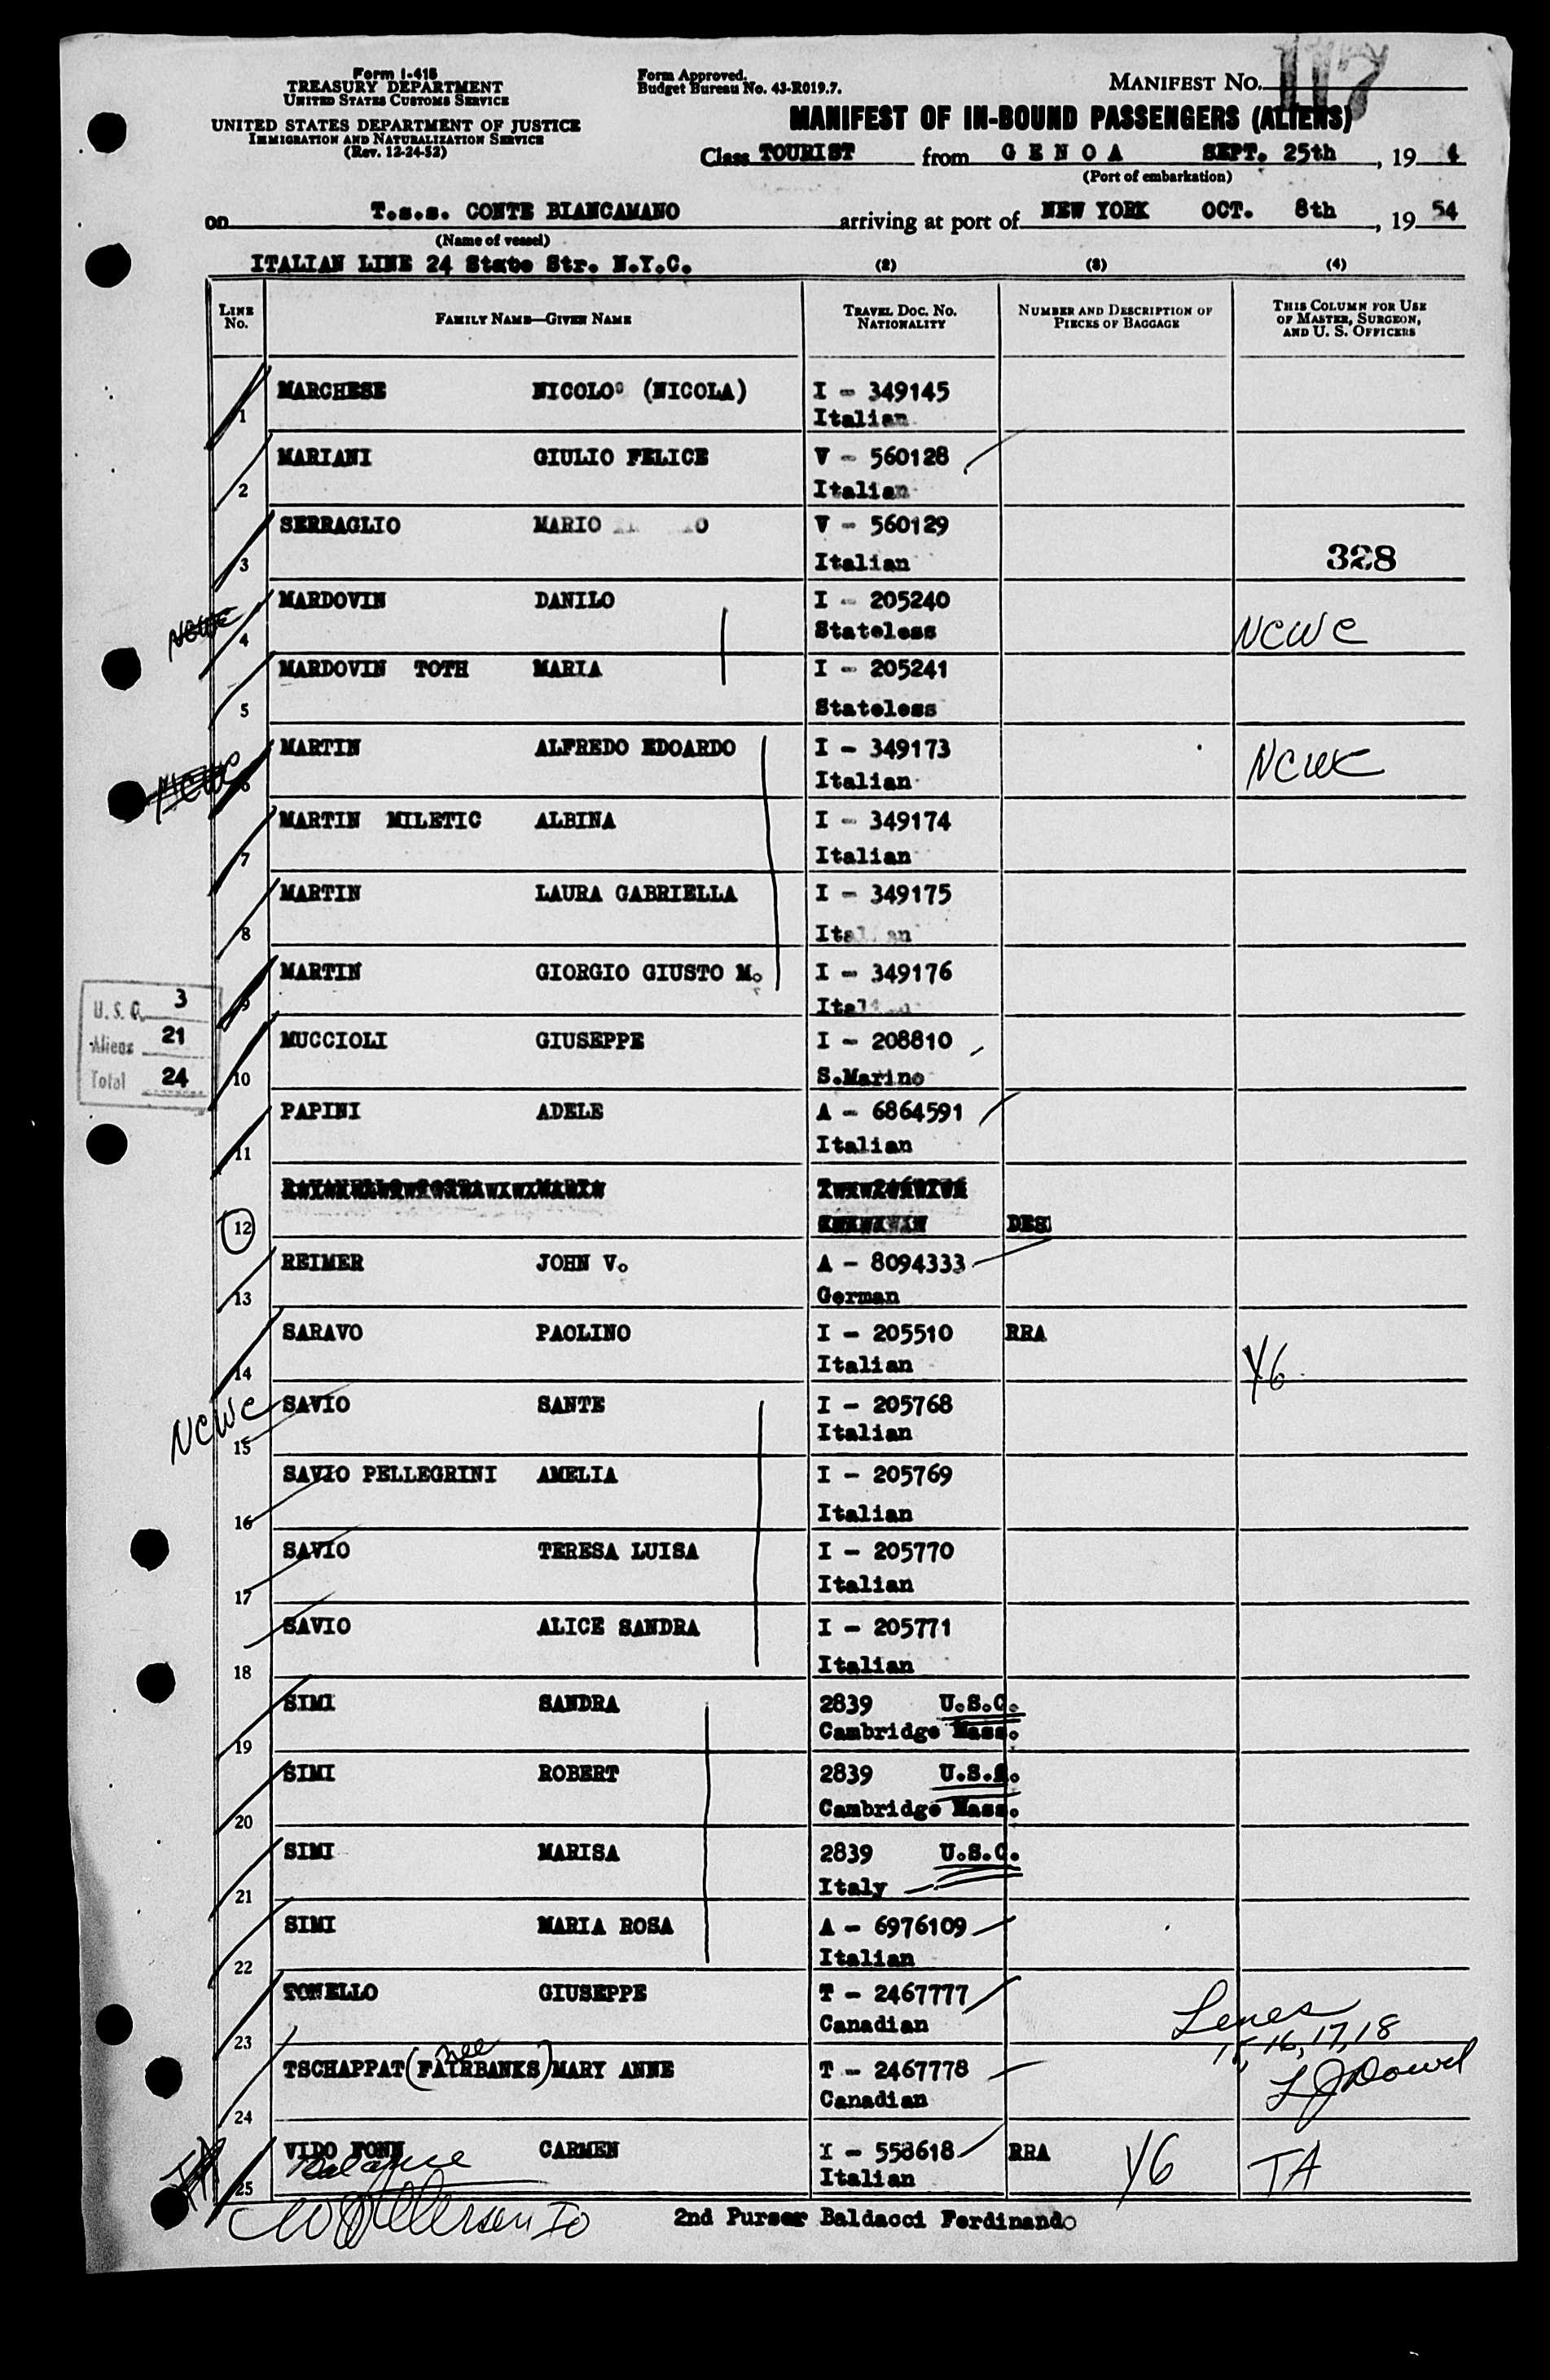 Form I-418
TREASURY DEPARTMENT
UNITED STATES CUSTOMS SERVICE
UNITED STATES DEPARTMENT OF JUSTICE
IMMIGRATION AND NATURALIZATION SERVICE
(Rev. 12-24-52)
Form Approved.
Budget Bureau No. 43-R019.7.
MANIFEST NO. 117
MANIFEST OF IN-BOUND PASSENGERS (ALIENS)
Class TOURIST from GENOA SEPT. 25th, 19 4
(Port of embarkation)
on T.s.s. CONTE BIANCAMANO arriving at port of NEW YORK OCT. 8th, 19 54
(Name of vessel)
ITALIAN LINE 24 State Str. N.Y.C. (2) (3) (4)
LINE No. FAMILY NAME—GIVEN NAME TRAVEL DOC. NO. NATIONALITY NUMBER AND DESCRIPTION OF PIECES OF BAGGAGE THIS COLUMN FOR USE OF MASTER, SURGEON, AND U. S. OFFICERS
1 MARCHESE NICOLO° (NICOLA) I - 349145
Italian
2 MARIANI GIULIO FELICE V - 560128
Italian
3 SERRAGLIO MARIO V - 560129
Italian 328
NCWC 4 MARDOVIN DANILO I - 205240
Stateless NCWC
5 MARDOVIN TOTH MARIA I - 205241
Stateless
NCWC 6 MARTIN ALFREDO EDOARDO I - 349173
Italian NCWC
7 MARTIN MILETIC ALBINA I - 349174
Italian
8 MARTIN LAURA GABRIELLA I - 349175
Italian
9 MARTIN GIORGIO GIUSTO M. I - 349176
Italian
U.S.C. 3
Aliens 21
Total 24
10 MUCCIOLI GIUSEPPE I - 208810
S.Marino
11 PAPINI ADELE A - 6864591
Italian
12 DES
13 REIMER JOHN V. A - 8094333
German
14 SARAVO PAOLINO I - 205510 RRA
Italian Y6
NCWC 15 SAVIO SANTE I - 205768
Italian
16 SAVIO PELLEGRINI AMELIA I - 205769
Italian
17 SAVIO TERESA LUISA I - 205770
Italian
18 SAVIO ALICE SANDRA I - 205771
Italian
19 SIMI SANDRA 2839 U.S.C.
Cambridge Mass.
20 SIMI ROBERT 2839 U.S.C.
Cambridge Mass.
21 SIMI MARISA 2839 U.S.C.
Italy
22 SIMI MARIA ROSA A - 6976109
Italian
23 TONELLO GIUSEPPE T - 2467777
Canadian
Lines
15, 16, 17, 18
24 TSCHAPPAT (nee FAIRBANKS) MARY ANNE T - 2467778
Canadian
L J Dowd
TA 25 VIDO FONN CARMEN I - 558618 RRA Y6 TA
Italian
Balance
2nd Purser Baldacci Ferdinando